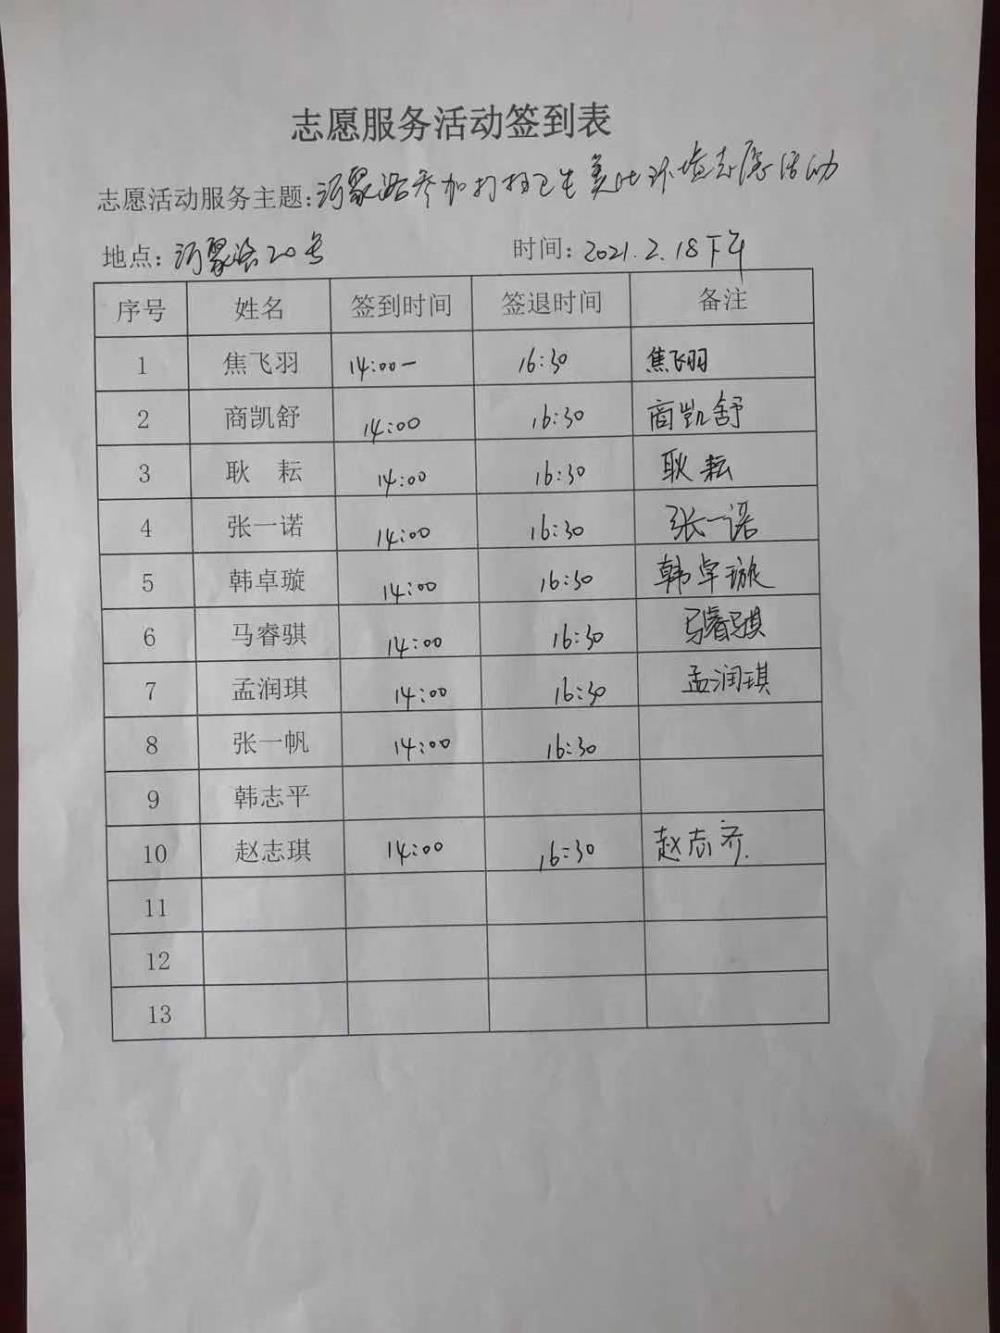 志愿服务活动签到表
志愿活动服务主题:河聚路参加打扫卫生美化环境志愿活动
地点:河聚路20号 时间:2021.2.18下午
序号 姓名 签到时间 签退时间 备注
1 焦飞羽 14:00- 16:30 焦飞羽
2 商凯舒 14:00 16:30 商凯舒
3 耿 耘 14:00 16:30 耿耘
4 张一诺 14:00 16:30 张一诺
5 韩卓璇 14:00 16:30 韩卓璇
6 马睿骐 14:00 16:30 马睿骐
7 孟润琪 14:00 16:30 孟润琪
8 张一帆 14:00 16:30
9 韩志平
10 赵志琪 14:00 16:30 赵志齐.
11
12
13